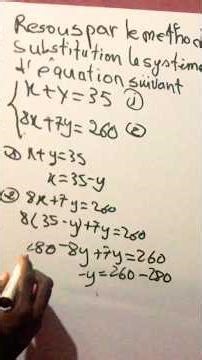 Resous par le méthod
substitution le système
d'équation suivant
x+y=35 ①
8x+7y=260 ②
① x+y=35
x=35-y
② 8x+7y=260
8(35-y)+7y=260
280-8y+7y=260
-y=260-280